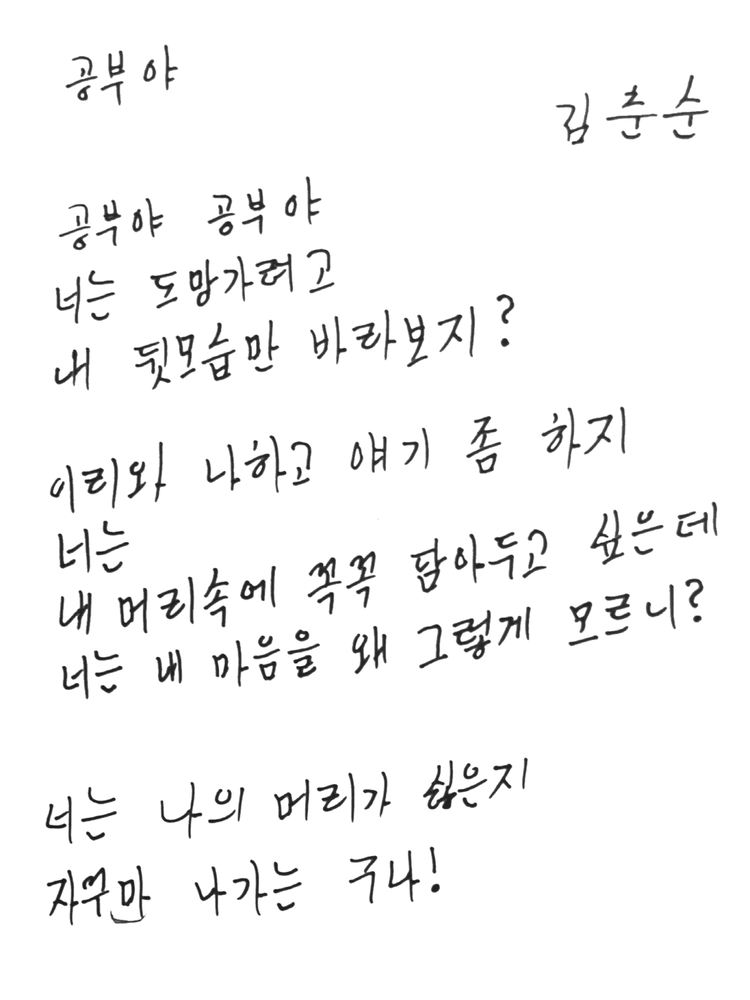 공부야
김춘순
공부야 공부야
너는 도망가려고
내 뒷모습만 바라보지?
이리와 나하고 얘기 좀 하지
너는
내 머리속에 꼭꼭 담아두고 싶은데
너는 내 마음을 왜 그렇게 모르니?
너는 나의 머리가 싫은지
자꾸만 나가는 구나!